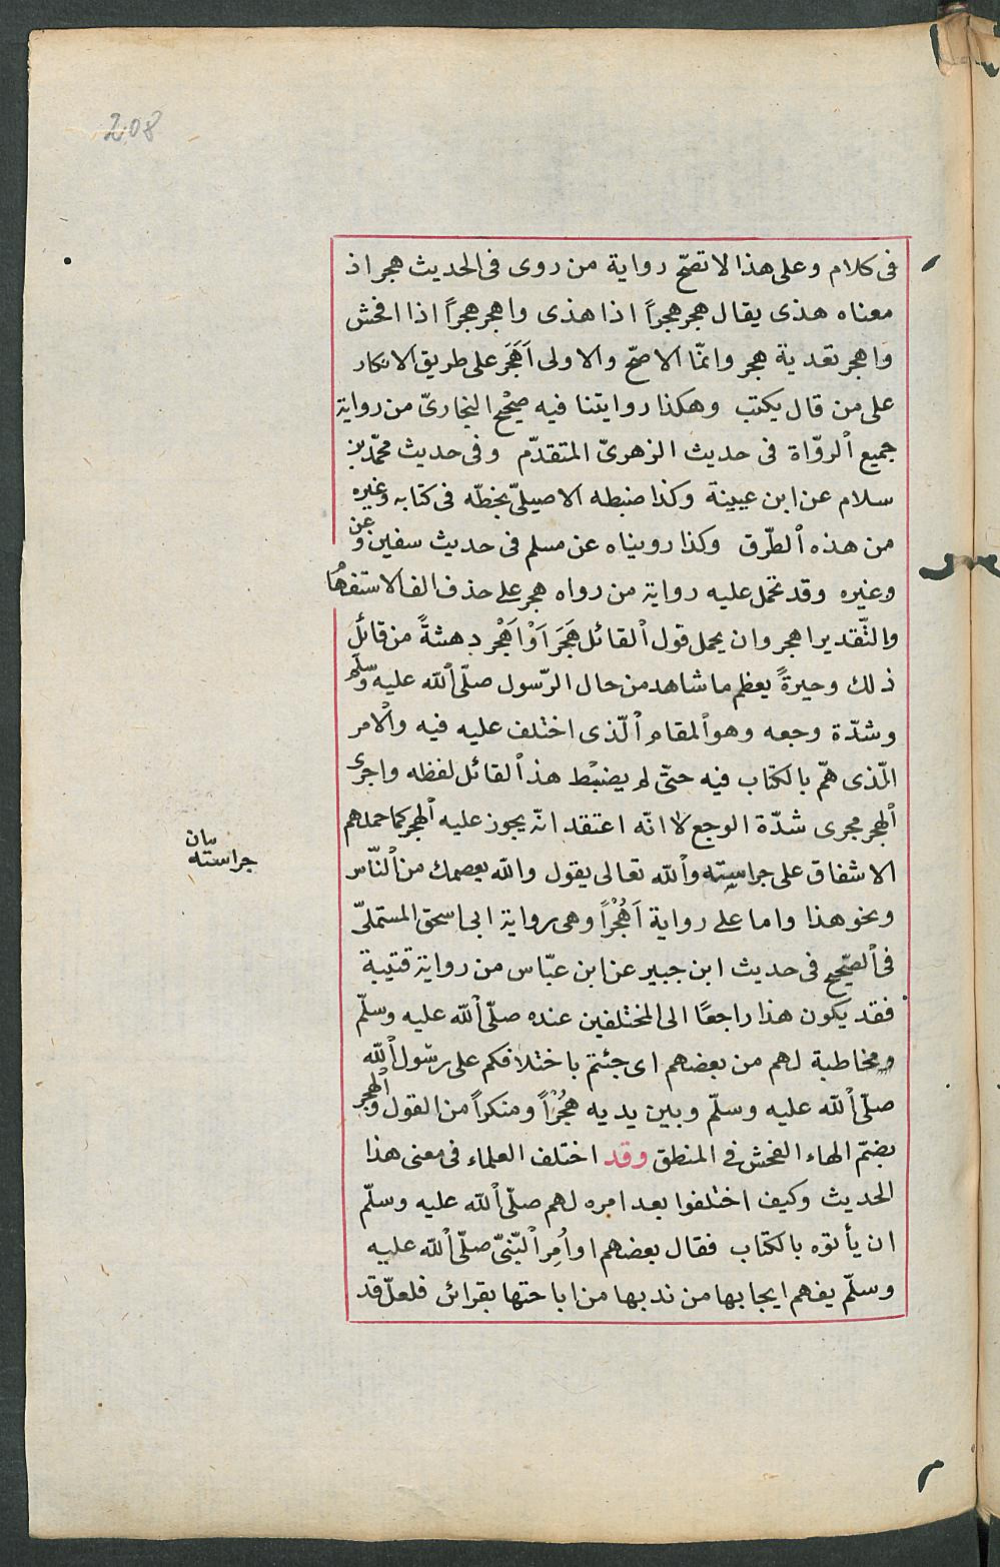 208
فى كلام وعلى هذا لا تصحّ رواية من روى فى الحديث هجر اذ
معناه هذى يقال هجر هجراً اذا هذى واهجر هجراً اذا افحش
واهجر تعدية هجر وانمّا الاصحّ والاولى اَهَجَرَ على طريق الانكار
على من قال يكتب وهكذا روايتنا فيه صحيح البخارىّ من رواية
جميع الروّاة فى حديث الزهرىّ المتقدّم وفى حديث محمّد بن
سلام عن ابن عيينة وكذا ضبطه الاصيلىّ بخطّه فى كتابه وغيره
من هذه الطّرق وكذا رويناه عن مسلم فى حديث سفين وعن
وغيره وقد تحمل عليه رواية من رواه هجر على حذف الف الاستفهام
والتّقدير اهجر وان يحمل قول القائل هَجَرَ اَوْ اَهْجر دهشةً من قائل
ذلك وحيرةً بعظم ما شاهد من حال الرّسول صلّى الله عليه وسلّم
وشدّة وجعه وهو المقام الّذى اختلف عليه فيه والامر
الّذى همّ بالكتاب فيه حتّى لم يضبط هذا القائل لفظه واجرى
الهجر مجرى شدّة الوجع لا انّه اعتقد انّه يجوز عليه الهجر كما حملهم
الاشفاق على جراسته والله تعالى يقول والله يعصمك من النّاس
ونحو هذا واما على رواية اَهُجْراً وهى رواية ابى اسحق المستملىّ
فى الصّحيح فى حديث ابن جبير عن ابن عبّاس من رواية قتيبة
فقد يكون هذا راجعًا الى المختلفين عنده صلّى الله عليه وسلّم
ومخاطبة لهم من بعضهم اى جئتم باختلافكم على رسول الله
صلّى الله عليه وسلّم وبين يديه هُجْراً ومنكراً من القول والهجر
بضمّ الهاء الفحش فى المنطق وقد اختلف العلماء فى معنى هذا
الحديث وكيف اختلفوا بعد امره لهم صلّى الله عليه وسلّم
ان يأتوه بالكتاب فقال بعضهم اوامِر النّبىّ صلّى الله عليه
وسلّم يفهم ايجابها من ندبها من اباحتها بقرائن فلعلّ قد
بيان
جراسته